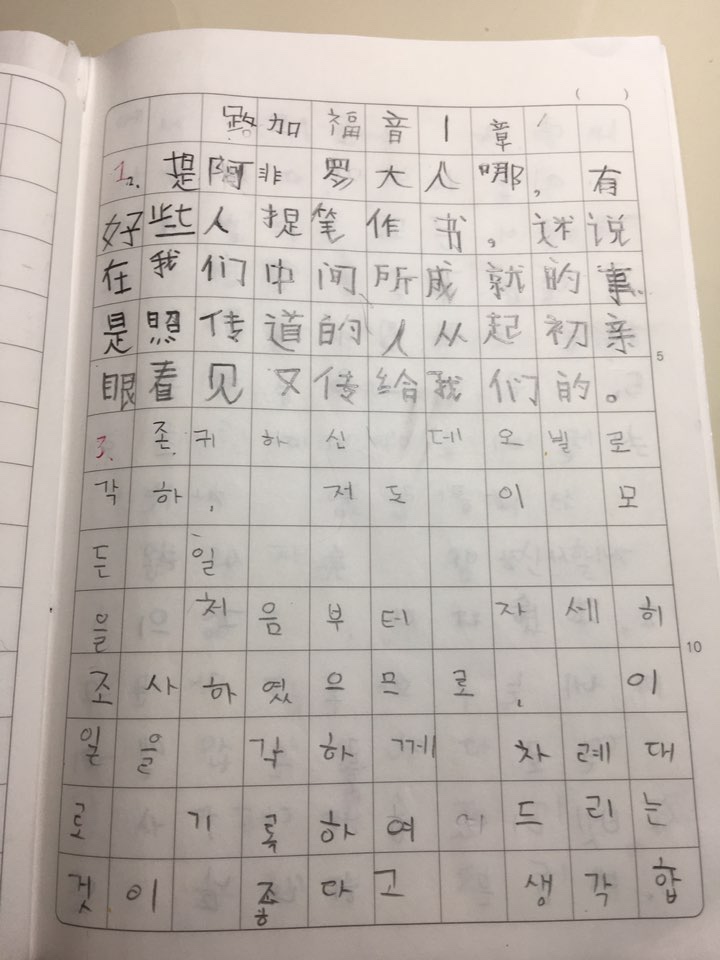 路加福音1章
1,2. 提阿非罗大人哪，有
好些人提笔作书，述说
在我们中间所成就的事
是照传道的人从起初亲
眼看见又传给我们的。
3. 존귀하신 데오빌로
각하, 저도 이 모
든 일
을 처음부터 자세히
조사하였으므로, 이
일을 각하께 차례대
로 기록하여 드리는
것이 좋다고 생각합
5
10